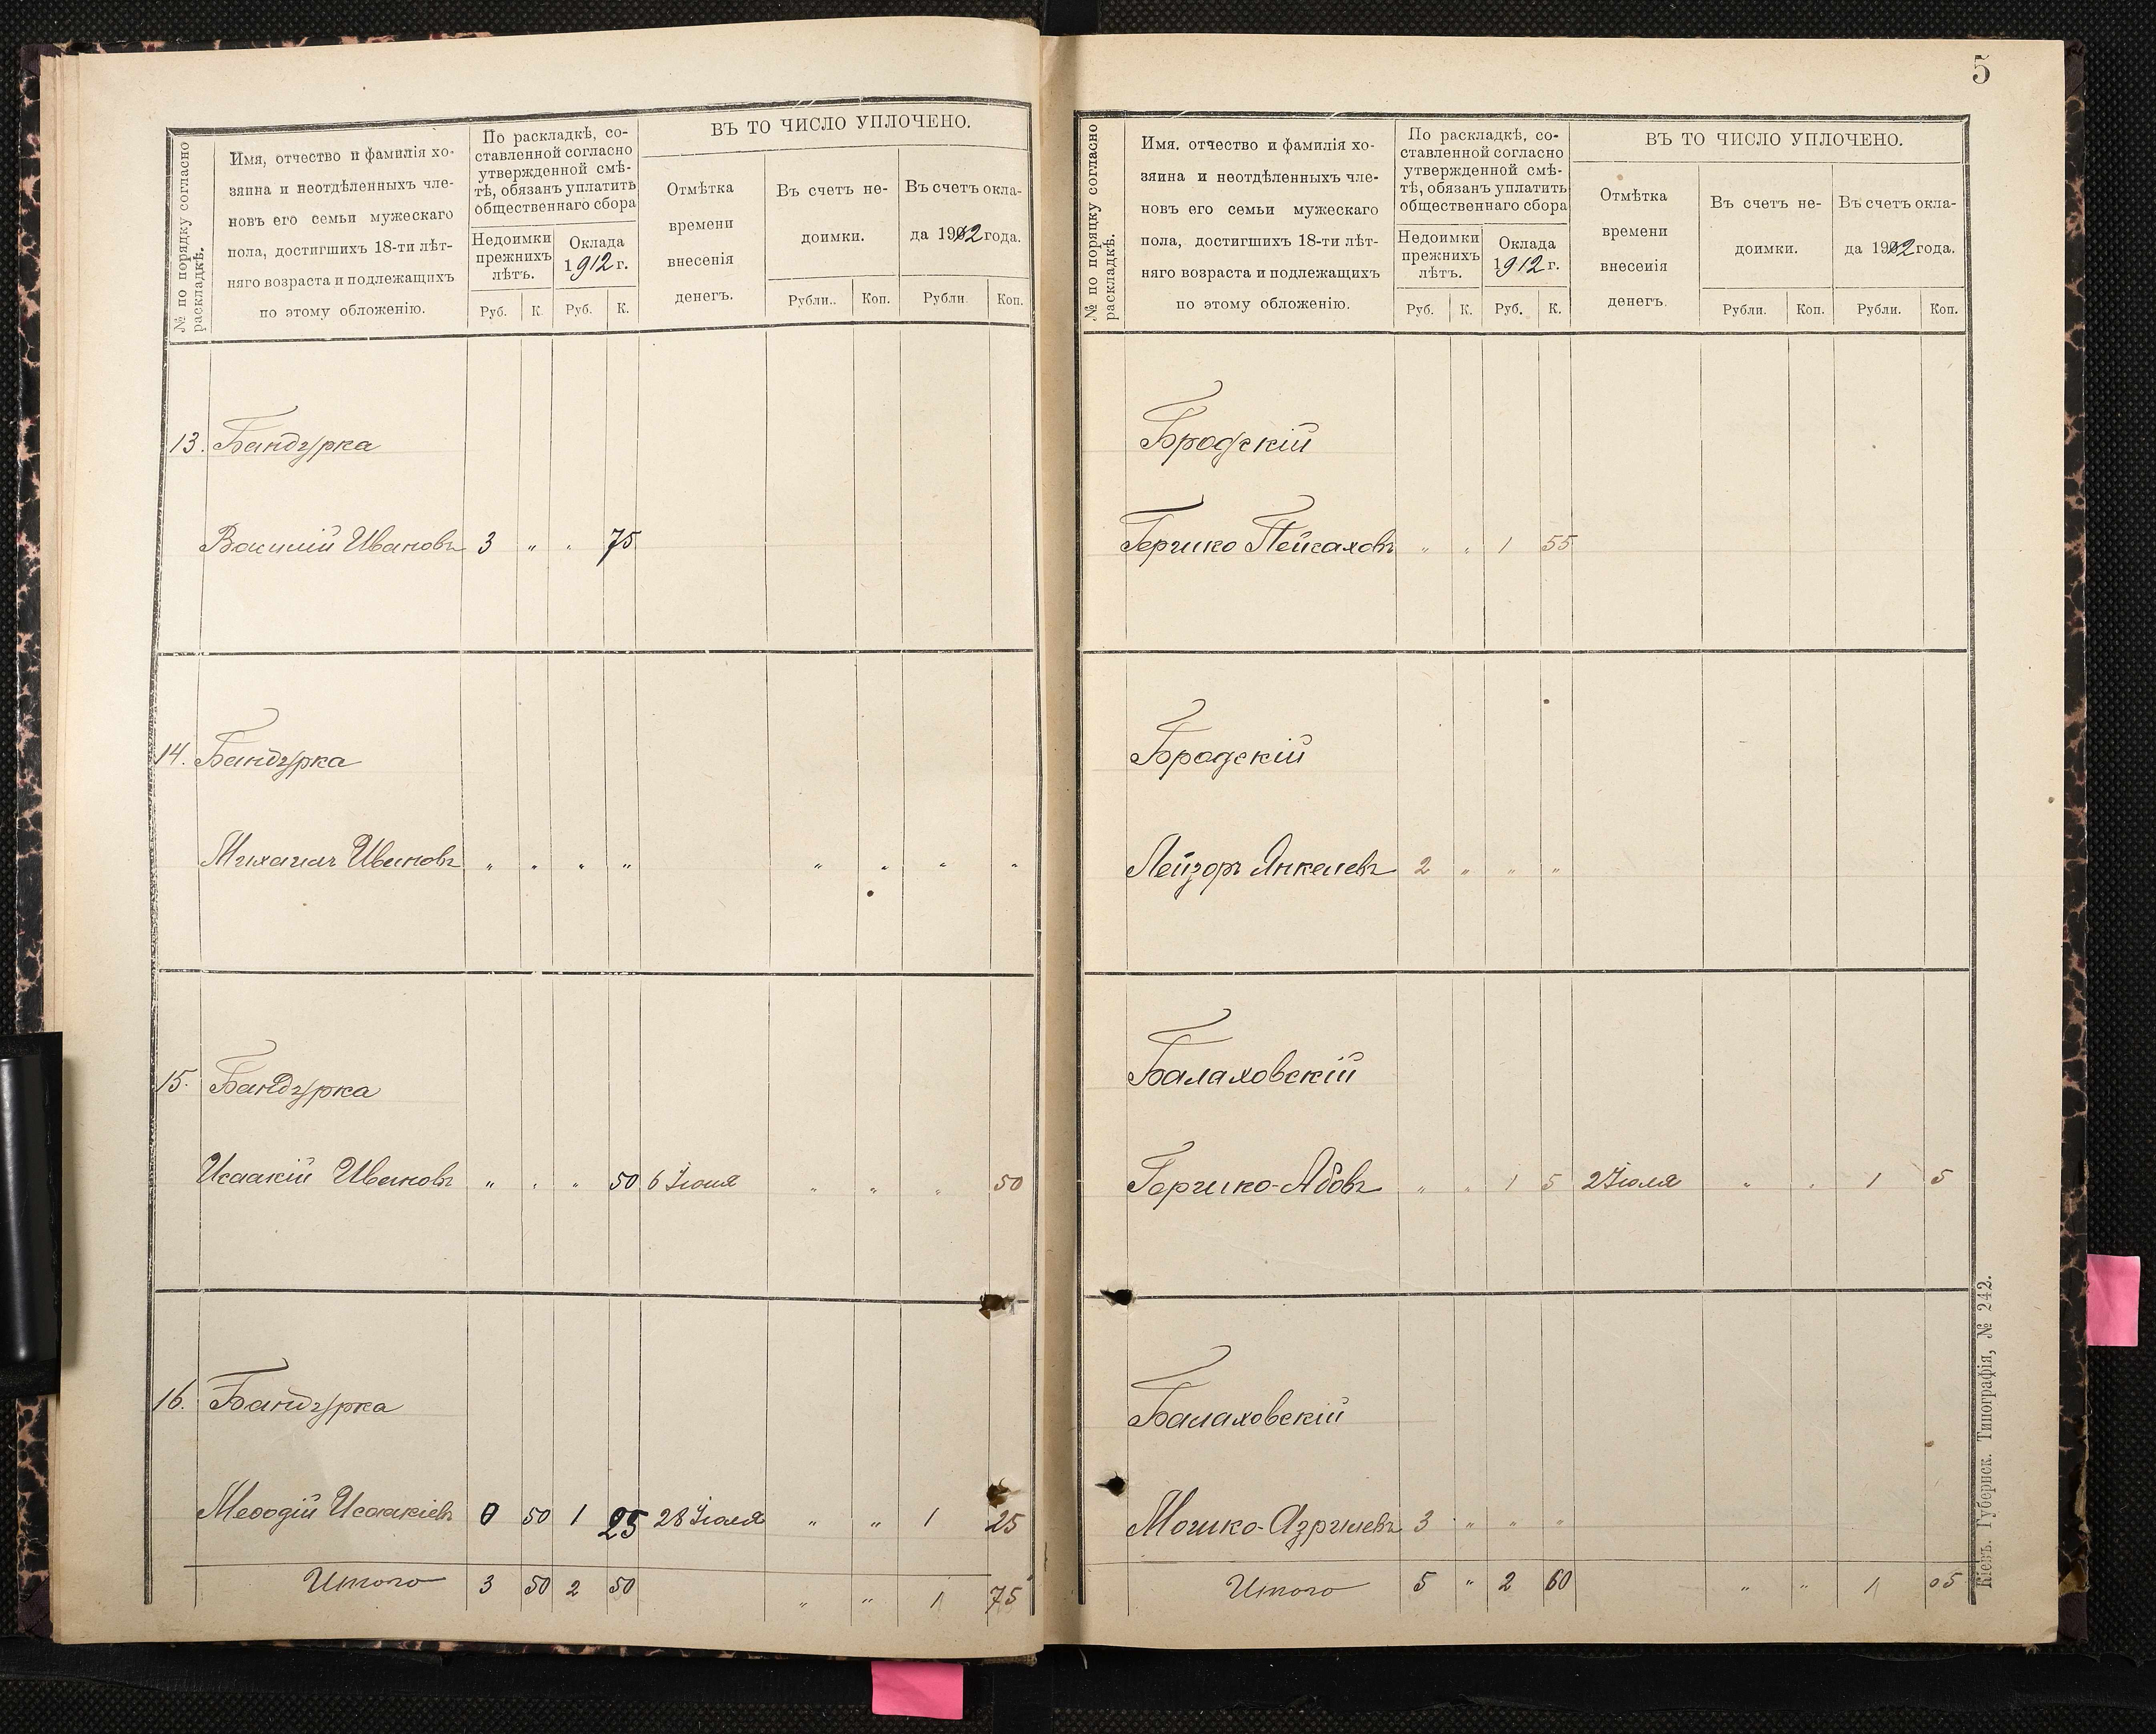 № по порядку согласно
раскладкѣ.
Имя, отчество и фамилія хо-
зяина и неотдѣленныхъ чле-
новъ его семьи мужескаго
пола, достигшихъ 18-ти лѣт-
няго возраста и подлежащихъ
по этому обложенію.
По раскладкѣ, со-
ставленной согласно
утвержденной смѣ-
тѣ, обязанъ уплатить
общественнаго сбора
Недоимки
прежнихъ
лѣтъ.
Оклада
1912 г.
Руб. К. Руб. К.
ВЪ ТО ЧИСЛО УПЛОЧЕНО.
Отмѣтка
времени
внесенія
денегъ.
Въ счетъ не-
доимки.
Въ счетъ окла-
да 1912 года.
Рубли.. Коп. Рубли. Коп.
13. Бандурка
Василій Ивановъ 3 " " 75
14. Бандурка
Михаилъ Ивановъ " " " " " " " "
15. Бандурка
Исаакій Ивановъ " " " 50 6 Іюля " " " 50
16. Бандурка
Меѳодій Исаакіевъ 0 50 1 25 28 Іюля " " 1 25
Итого 3 50 2 50 " " 1 75
5
№ по порядку согласно
раскладкѣ.
Имя. отчество и фамилія хо-
зяина и неотдѣленныхъ чле-
новъ его семьи мужескаго
пола, достигшихъ 18-ти лѣт-
няго возраста и подлежащихъ
по этому обложенію.
По раскладкѣ, со-
ставленной согласно
утвержденной смѣ-
тѣ, обязанъ уплатить
общественнаго сбора
Недоимки
прежнихъ
лѣтъ.
Оклада
1912 г.
Руб. К. Руб. К.
ВЪ ТО ЧИСЛО УПЛОЧЕНО.
Отмѣтка
времени
внесенія
денегъ.
Въ счетъ не-
доимки.
Въ счетъ окла-
да 1912 года.
Рубли. Коп. Рубли. Коп.
Бродскій
Гершко Пейсаховъ " " 1 55
Бродскій
Лейзоръ Янкелевъ 2 " " "
Балаховскій
Гершко-Абовъ " " 1 5 2 Іюля " " 1 5
Балаховскій
Мошко-Азрилевъ 3 " " "
Итого 5 " 2 60 " " 1 05
Кіевъ. Губернск. Типографія, № 242.